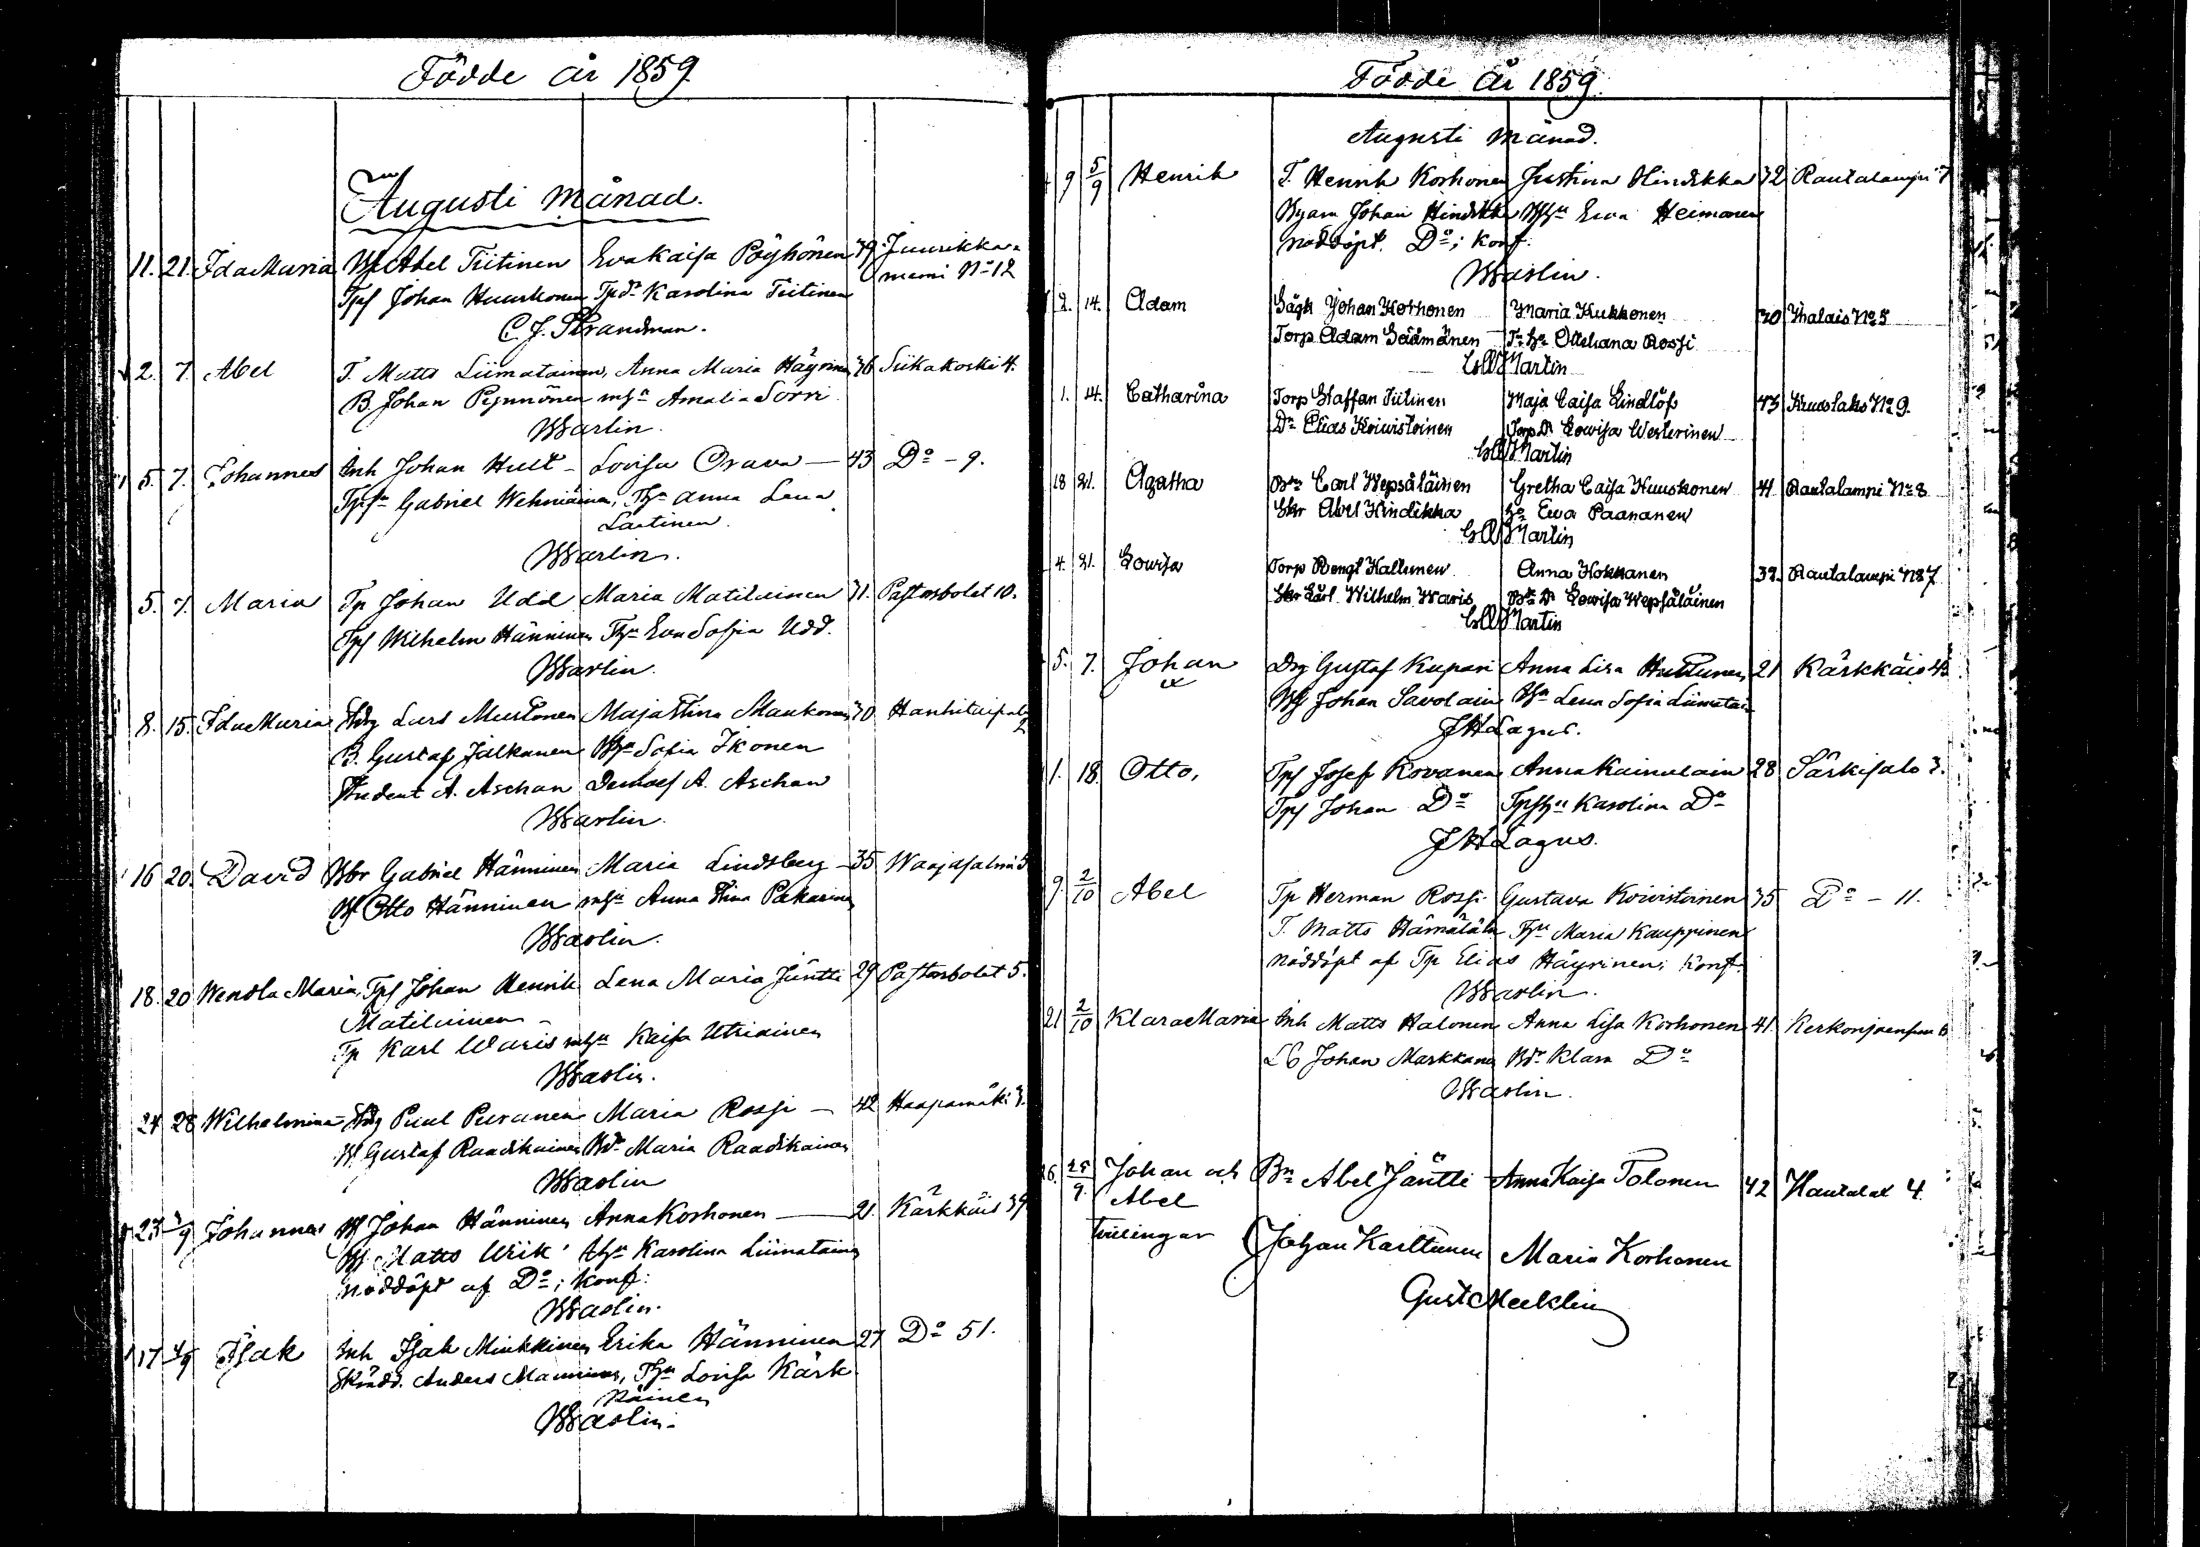 Födde år 1859
Augusti Månad.
11. 21. Ida Maria Bf Abel Tiitinen Eva Kaisa Pöyhönen 39 Juurikka-
niemi No 12
Tpf Johan Huuskonen Tpdr Karolina Tiitinen
C. J. Strandman.
2. 7. Abel T. Matts Liimatainen, Anna Maria Häyrinen 36 Siikakoski 4.
B. Johan Pynnönen mhu Amalia Sorri
Warlin.
5. 7. Johannes Inh Johan Hult - Lovisa Orava — 43 Do - 9.
Gabriel Wehniäinen, Thu Anna Lena
Laitinen.
Warlin.
5. 7. Maria Tp Johan Udd Maria Matilainen 31. Pastorsbolet 10.
Tpf Wilhelm Hänninen Thu Eva Sofia Udd.
Warlin.
8. 15. Ida Maria Lars Mustonen Maja Stina Maukonen 30 Hanhitaipale
2
B. Gustaf Jalkanen Bhu Sofia Ikonen
Student A. Aschan A. Aschan
Warlin.
16 20. David Bbr Gabriel Hänninen Maria Lindsberg - 35 Waajasalmi 5
Bf Otto Hänninen mhu Anna Stina Pakarinen
Warlin.
18. 20 Wendla Maria, Tpf Johan Henrik Lena Maria Jäntti 29 Pastorsbolet 5.
Matilainen -
Tp Karl Waris mhu Kaisa Utriainen
Warlin.
24 28 Wilhelmina Puranen Maria Rossi — 42 Haapamäki 3.
Bf Gustaf Raadikainen Bdr Maria Raadikainen
Warlin
23 /9 Johannes Bf Johan Hänninen Anna Korhonen — 21. Kärkkäis 39
Bf Matts Karolina Liimatainen
nöddöpt af Do; konf:
Warlin.
17 4/9 Isak Inh Isak Minkkinen Erika Hänninen 27 Do 51.
Anders Manninen, Thu Lovisa Kärk
käinen
Warlin.
Födde År 1859.
Augusti Månad.
9 5/9 Henrik T. Henrik Korhonen Justina Hindikka 32 Rautalampi 7
Johan Hindikka Bhu Eva Heimonen
nöddöpt. Do; konf:
Warlin.
2. 14. Adam Johan Korhonen Maria Kukkonen 30 No 5
Torp Adam Säämänen Rossi
Martin
1. 14. Catharina Torp Staffan Tiitinen Maja Caisa Lindlöf 43 No 9.
Do Elias Koivistoinen Torp Dr Lowisa Westerinen
Martin
18 21. Agatha Carl Wepsäläinen Gretha Caisa Huuskonen 41 Rautalampi No 8
Abel Hindikka Hu Ewa Paananen
Martin
4. 21. Lowisa Torp Bengt Hallunen Anna Hokkanen 39. Rautalampi No 7
Carl Wilhelm Waris Dr Lowisa Wepsäläinen
Martin
5. 7. Johan Drg Gustaf Kupari Anna Lisa Huttunen 21 Kärkkäis 43
Bf Johan Savolain Bhu Lena Sofia Liimatai
J H Lagus.
1. 18. Otto, Tpf Josef Rovanen Anna Kainulain 28 Särkisalo 3.
Tpf Johan Do Tpfhu Karolina Do
J H Lagus.
9. 2/10 Abel Tp Herman Rossi Gustava Koivistoinen 35 Do - 11.
T. Matts Hämäläin Thu Maria Kauppinen
nöddöpt af Tp Elias Häyrinen; konf.
Warlin.
21 2/10 Klara Maria Inh Matts Halonen Anna Lisa Korhonen 41. Kerkonjoensuu 6
Johan Markkanen Bdr Klara Do
Warlin.
26. 25/9. Johan och Bn Abel Jäntti Anna Kaisa Tolonen 42 Hautalax 4.
Abel
tvillingar Johan Karttunen Maria Korhonen
Gust Mecklin